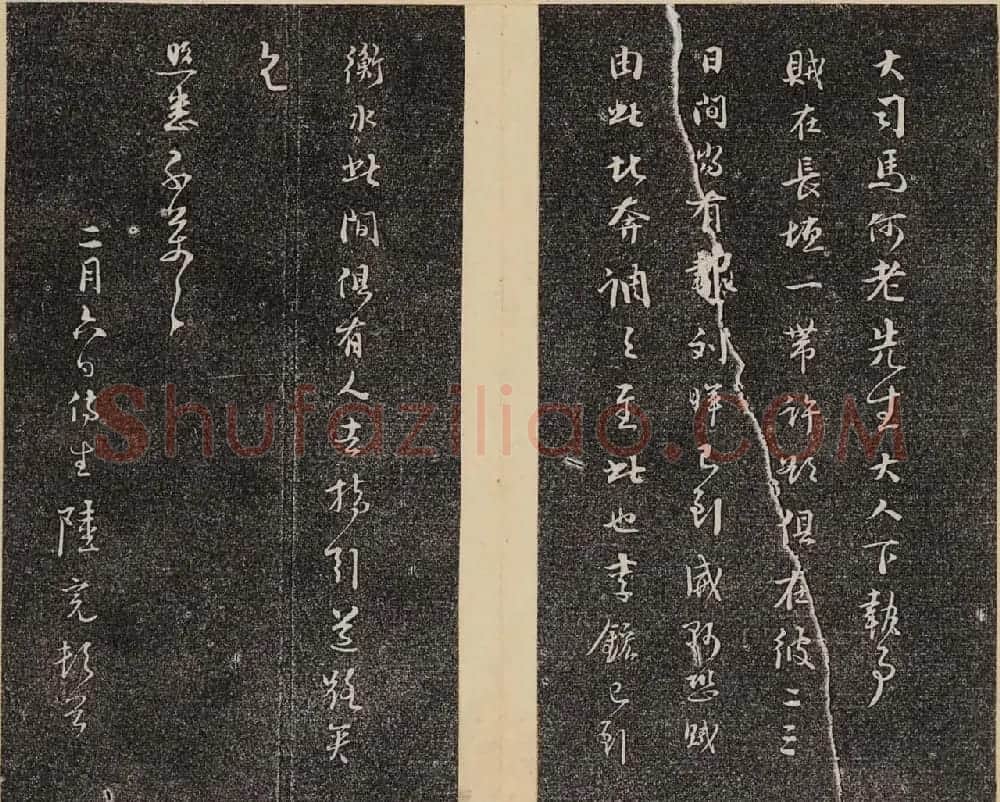 大司馬何老先生大人下執事
賊在長垣一帶許歘俱在彼二三
日間尚有報列暉已到威縣恐賊
由此北奔誦之至此也李鎰已到
衡水此間俱有人去接引道路矣
乞
照悉不莫之
二月六日侍生陸完頓首
Shufaziliao.COM